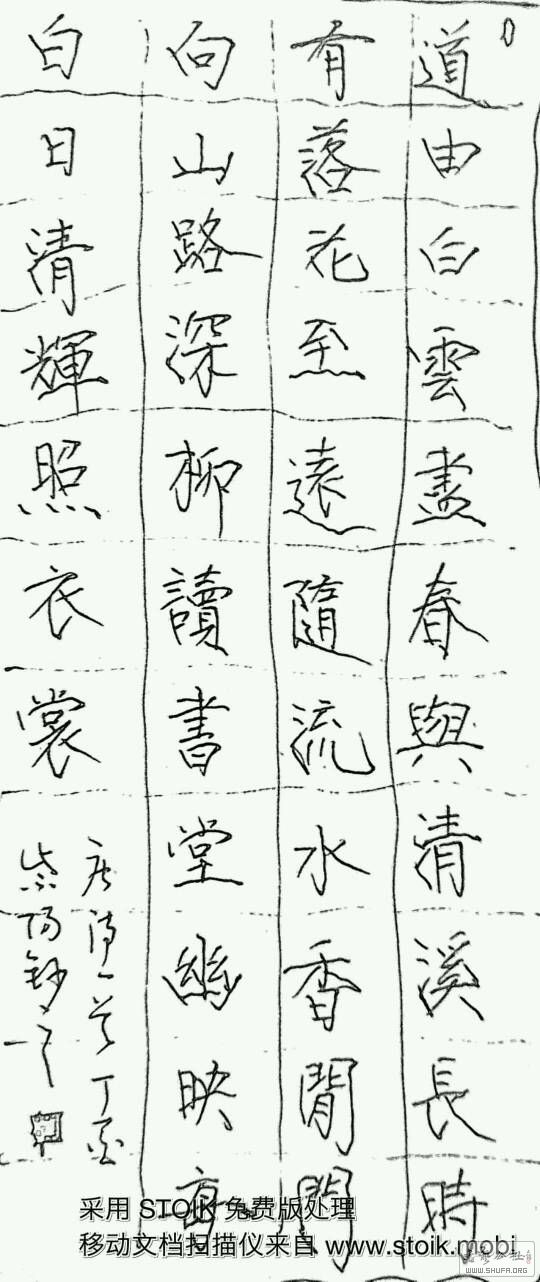 道由白雲盡春與清溪長時
有落花至遠隨流水香閒門
向山路深柳讀書堂幽映
白日清輝照衣裳
唐诗一首丁酉
采用 STOIK 免费版处理
移动文档扫描仪来自 www.stoik.mobi
WWW.SHUFA.ORG